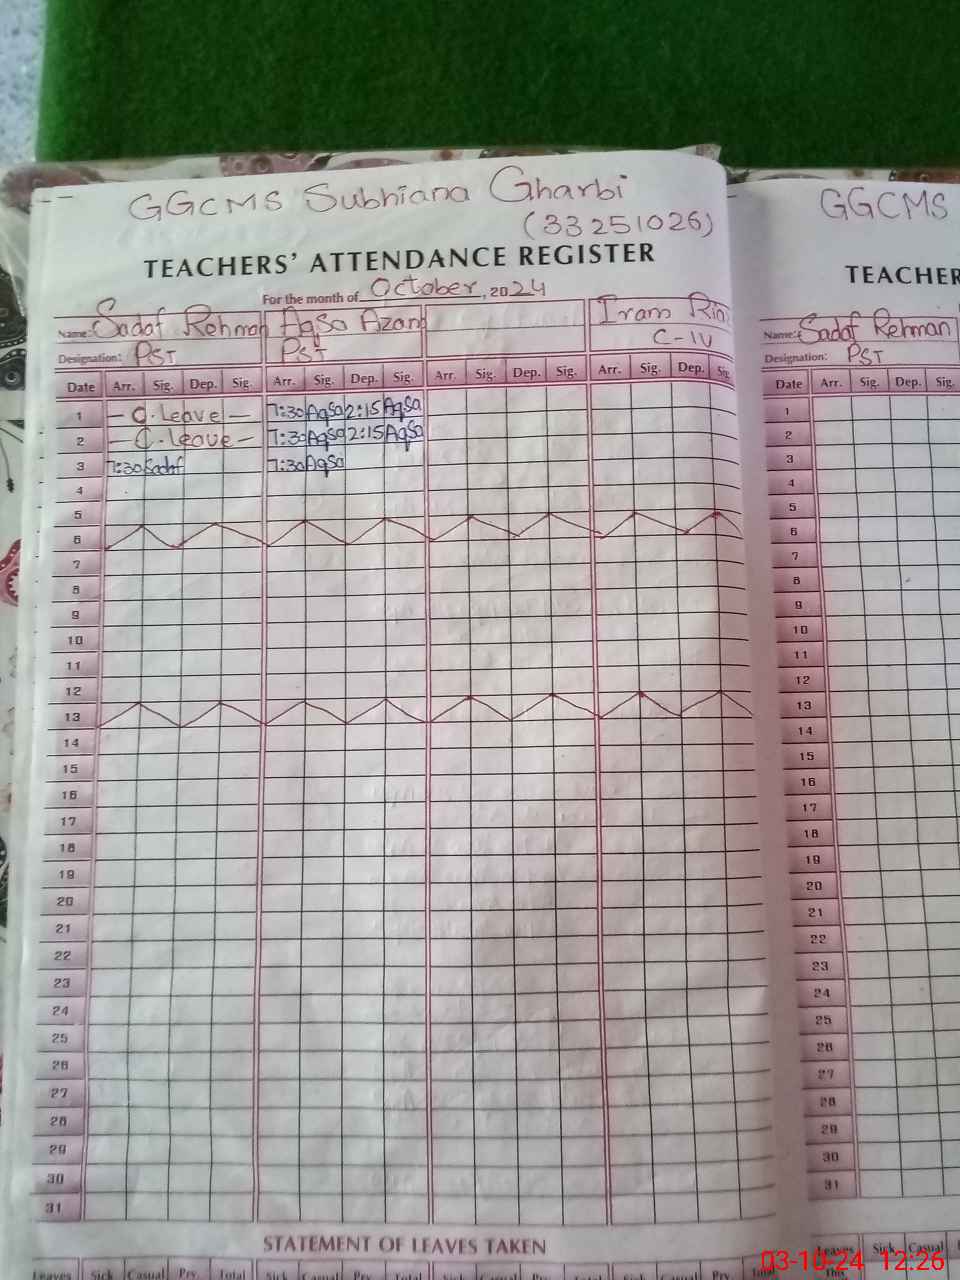 GGCMS Subhiana Gharbi
(33251026)
TEACHERS' ATTENDANCE REGISTER
For the month of October, 2024
Name: Sadaf Rehman Aqsa Azam Iram Ria
Designation: PST PST C-IV
Date Arr. Sig. Dep. Sig. Arr. Sig. Dep. Sig. Arr. Sig. Dep. Sig. Arr. Sig. Dep. Sig.
1 - C. Leave - 7:30 Aqsa 2:15 Aqsa
2 - C. Leave - 7:30 Aqsa 2:15 Aqsa
3 7:30 Sadaf 7:30 Aqsa
4
5
6
7
8
9
10
11
12
13
14
15
16
17
18
19
20
21
22
23
24
25
26
27
28
29
30
31
STATEMENT OF LEAVES TAKEN
Leaves Sick Casual Prv. Total Sick Casual Prv. Total Sick Casual Prv. Total Sick Casual Prv. Total
GGCMS
TEACHER
Name: Sadaf Rehman
Designation: PST
Date Arr. Sig. Dep. Sig.
1
2
3
4
5
6
7
8
9
10
11
12
13
14
15
16
17
18
19
20
21
22
23
24
25
26
27
28
29
30
31
Leaves Sick Casual
This
03-10-24 12:26